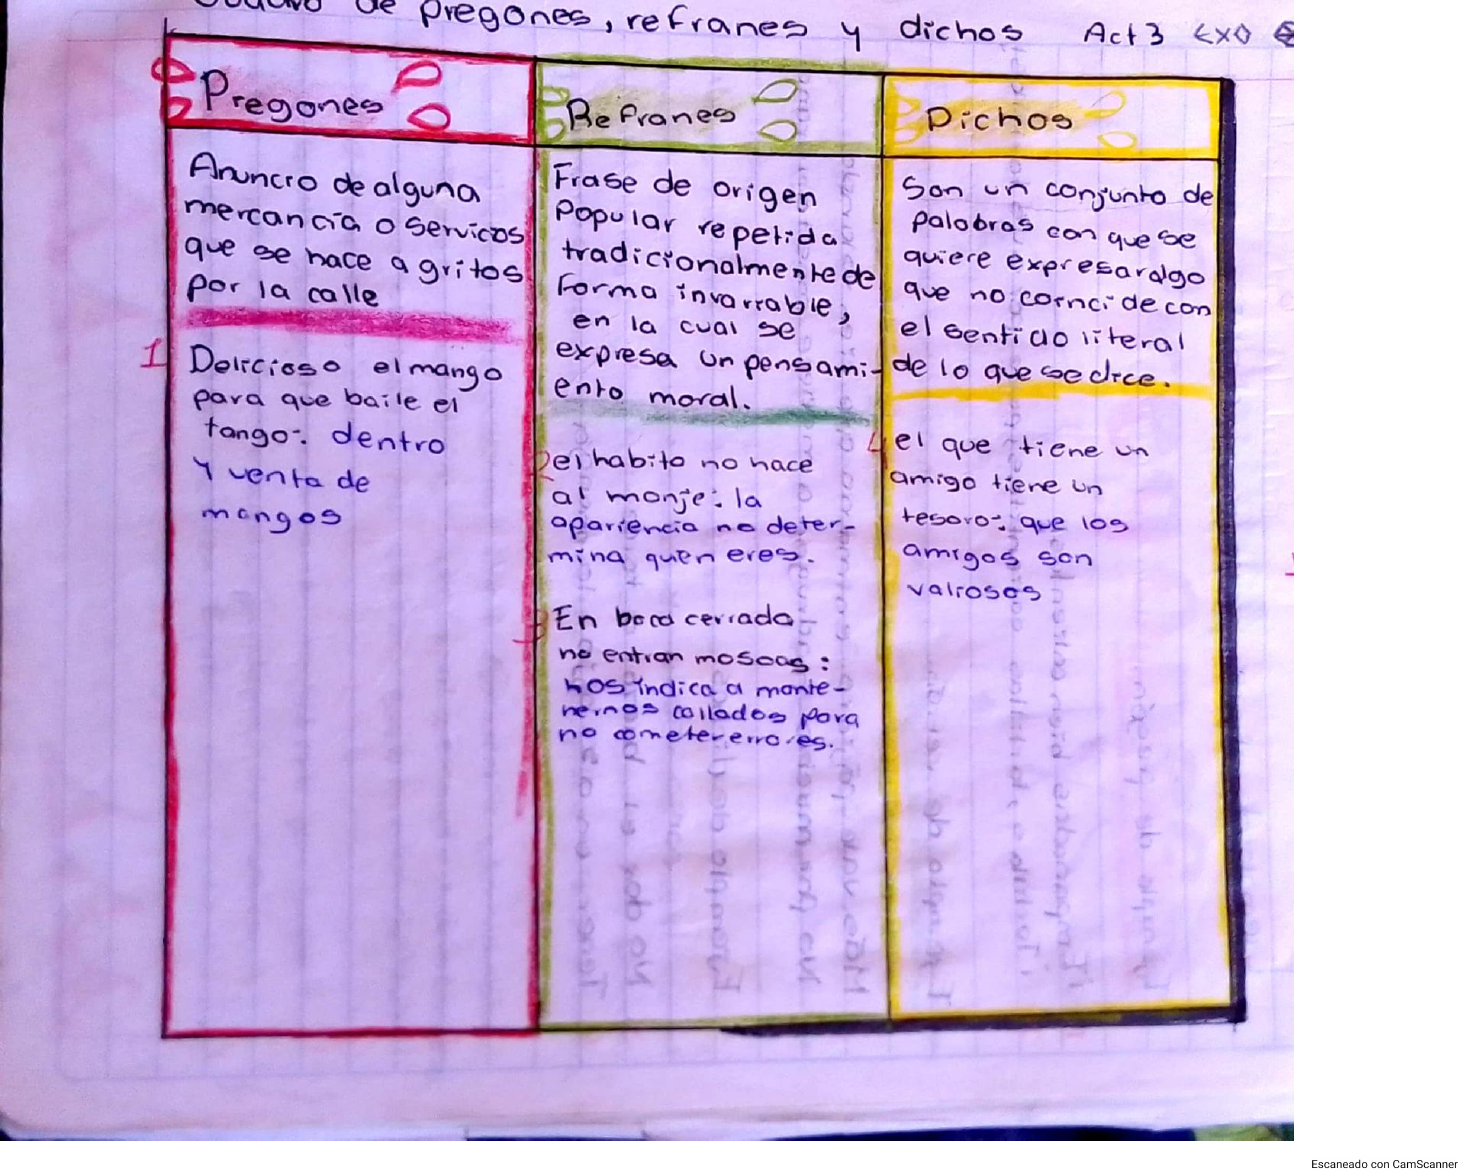 de pregones, refranes y dichos Act 3
Pregones
Anuncio de alguna
mercancía o servicios
que se hace a gritos
por la calle
1 Delicioso el mango
para que baile el
tango: dentro
y venta de
mangos
Refranes
Frase de origen
Popular repetida
tradicionalmente de
forma invariable,
en la cual se
expresa un pensami-
ento moral.
2 el habito no hace
al monje: la
apariencia no deter-
mina quen eres.
3 En boca cerrada
no entran moscas:
nos indica a mante-
nernos callados para
no cometer errores.
Dichos
Son un conjunto de
palabras con que se
quiere expresar algo
que no coincide con
el sentido literal
de lo que se dice.
4 el que tiene un
amigo tiene un
tesoro: que los
amigos son
valiosos
Escaneado con CamScanner